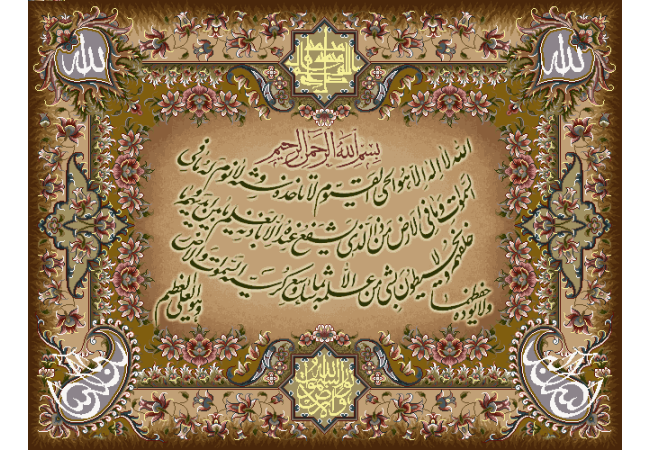 الله
الله
بسم الله الرحمن الرحيم
الله لا اله الا هو الحى القيوم لا تاخذه سنة و لا نوم له ما فى
السموات و ما فى الارض من ذا الذى يشفع عنده الا باذنه يعلم ما بين ايديهم و ما
خلفهم و لا يحيطون بشى من علمه الا بما شاء وسع كرسيه السموات و الارض
و لا يوده حفظهما
و هو العلى العظيم
الله نور السموات و الارض